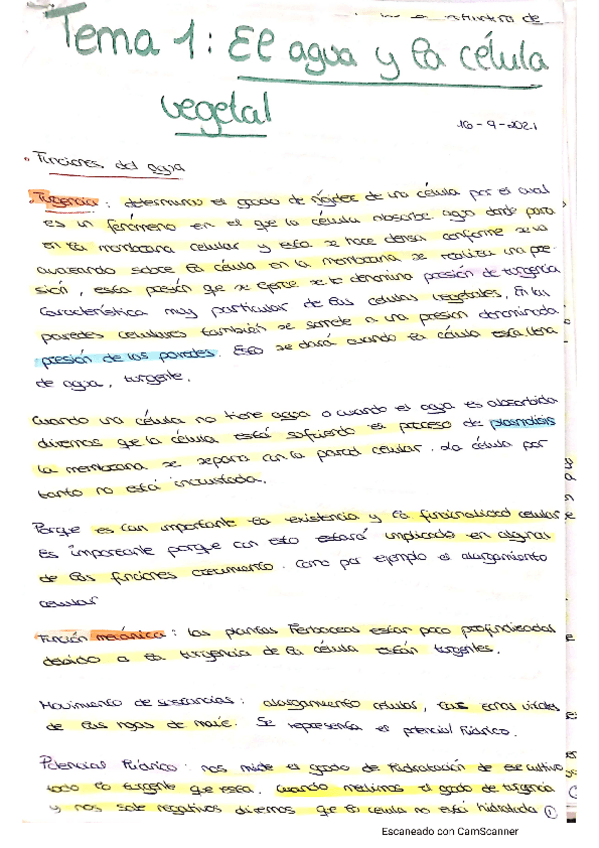 Tema 1: El agua y la célula
vegetal
16-9-2021
• Funciones del agua
• Turgencia: determinamos el grado de rigidez de una célula por el cual
es un fenómeno en el que la célula absorbe agua dando paso
en la membrana celular y esta se hace densa conforme se va
avanzando sobre la célula en la membrana se realiza una pre-
sión, esta presión que se ejerce se le denomina presión de turgencia
Característica muy particular de las células vegetales. En las
paredes celulares también se somete a una presion denominada
presión de las paredes. Esto se dará cuando la célula esta llena
de agua, turgente.
Cuando una célula no tiene agua o cuando el agua es absorbida
diremos que la célula está sufriendo el proceso de plasmólisis
la membrana se separa con la pared celular. La célula por
tanto no está incrustada.
Porque es tan importante la existencia y la funcionalidad celular
Es importante porque con esto estará implicado en algunas
de las funciones crecimiento. Como por ejemplo el alargamiento
celular
Función mecánica: las plantas herbaceas estan poco
debido a la turgencia de la célula están turgentes.
Movimiento de sustancias: alargamiento celular,
de las hojas de maíz. Se representa el potencial hídrico.
Potencial hídrico: nos mide el grado de hidratación de ese cultivo
todo lo turgente que esta. Cuando medimos el grado de turgencia
y nos sale negativos diremos que la célula no está hidratada ①
Escaneado con CamScanner